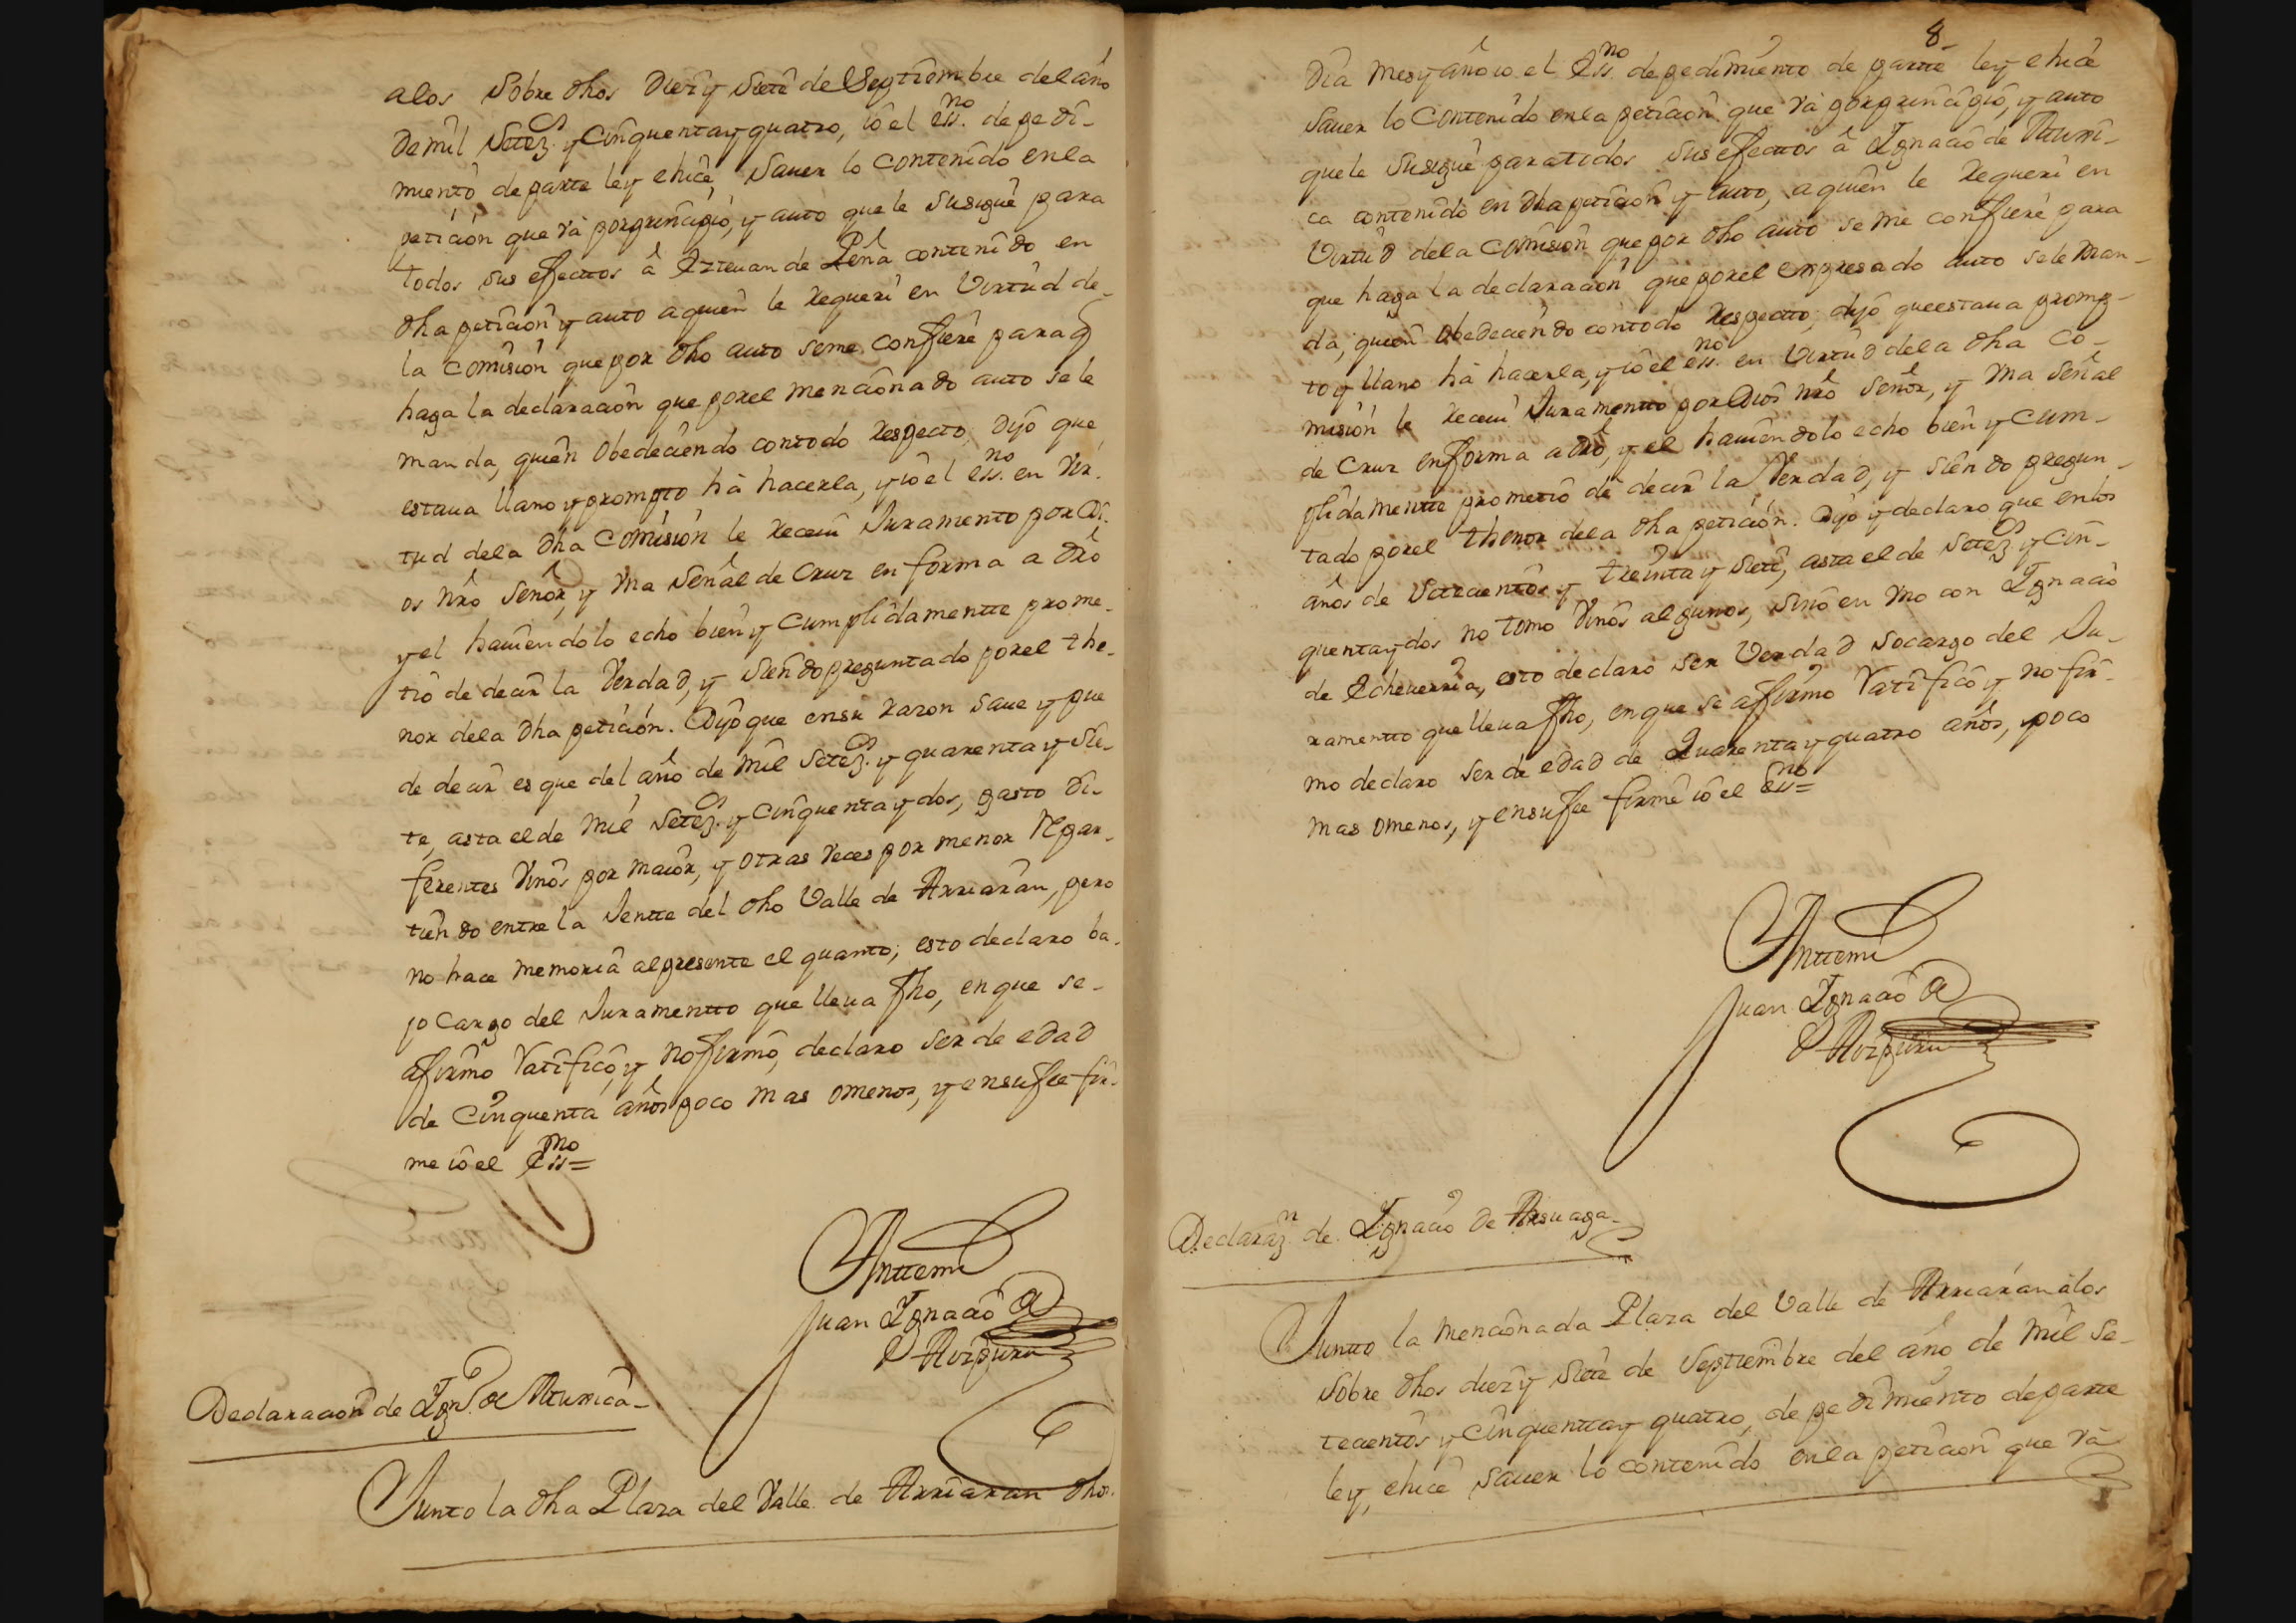 a los sobre dhos diez y siete de Septiembre del año
de mil setez.s y cinquenta y quatro, io el ess.no de pedi-
miento de parte ley e hice saver lo contenido en la
petición que vá por prinzipio, y auto que le susigue para
todos sus efectos â Estevan de Peña contenido en
dha petición y auto a quien le requeri en virtud de-
la comisión que por dho auto se me confiere para q
haga la declaración que por el mencionado auto se le
manda, quien obedeciendo con todo respecto, dijo que
estava llano y prompto há hacerla, y io el ess.no en vir-
tud de la dha comisión le receui Juramento por Di-
os nro señor, y vna señal de Cruz en forma a dro
y el haviendolo echo bien y cumplidamentte prome-
tió de decir la verdad, y siendo preguntado por el the-
nor de la dha petición. Dijo que en su razon save y pue
de decir es que del año de mil setez.s y quarenta y sie-
te, asta el de mil setez.s y cinquenta y dos, gasto di-
ferentes vinos por maior, y otras veces por menor repar-
tiendo entre la Jentte del dho Valle de Arriaran, pero
no hace memoria al presente el quanto; esto declaro ba-
jo cargo del Juramentto que lleua fho, en que se-
afirmo ratificó, y no firmó, declaro ser de edad
de cinquenta años poco mas omenos, y en su fee fir-
me io el Ess.no=
Anttemi
Juan Ignacio de
Aizpuru
Declaracion de Ign.o de Aturica-
Juntto la dha Plaza del Valle de Arriaran dho.
8-
dia mes y año io el Ess.no de pedimiento de partte ley e hice
saver lo contenido en la petición que vá por prinzipio, y auto
que le susigue para todos sus efectos â Ignacio de Aturi-
ca contenido en dha petición y auto, a quien le requeri en
virtud de la comisión que por dho auto se me confiere para
que haga la declaración que por el expresado auto se le man-
da, quien obedeciendo con todo respectto, dijo que estava promp-
to y llano há hacerla, y io el ess.no en virtud de la dha co-
misión le receui Juramentto por Dios nro señor, y vna señal
de Cruz en forma a dro, y el haviendolo echo bien y cum-
plidamentte prometió de decir la verdad, y siendo pregun-
tado por el thenor de la dha petición. Dijo y declaro que en los
años de setecientos y treinta y siete, asta el de setez.s y cin-
quenta y dos no tomó vinos algunos, sino en vno con Ignacio
de Echeuerria, esto declaro ser verdad socargo del Ju-
ramentto que lleua fho, en que se afirmo ratificó y no fir-
mo declaro ser de edad de Quarenta y quatro años, poco
mas omenos, y en su fee firmé io el Ess.no=
Anttemi
Juan Ignacio de
Aizpuru
Declaraz.n de Ignacio de Arsuaga-
Juntto la mencionada Plaza del Valle de Arriaran alos
sobre dhos diez y siete de Septiembre del año de mil se-
tecientos y cinquentta y quatro, de pedimiento de parte
ley, e hice saver lo contenido en la petición que vá